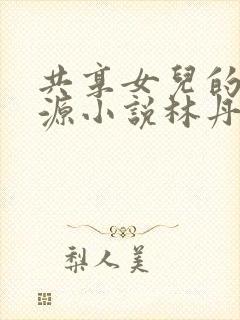 共享女兒的
源小說林丹
梨人美